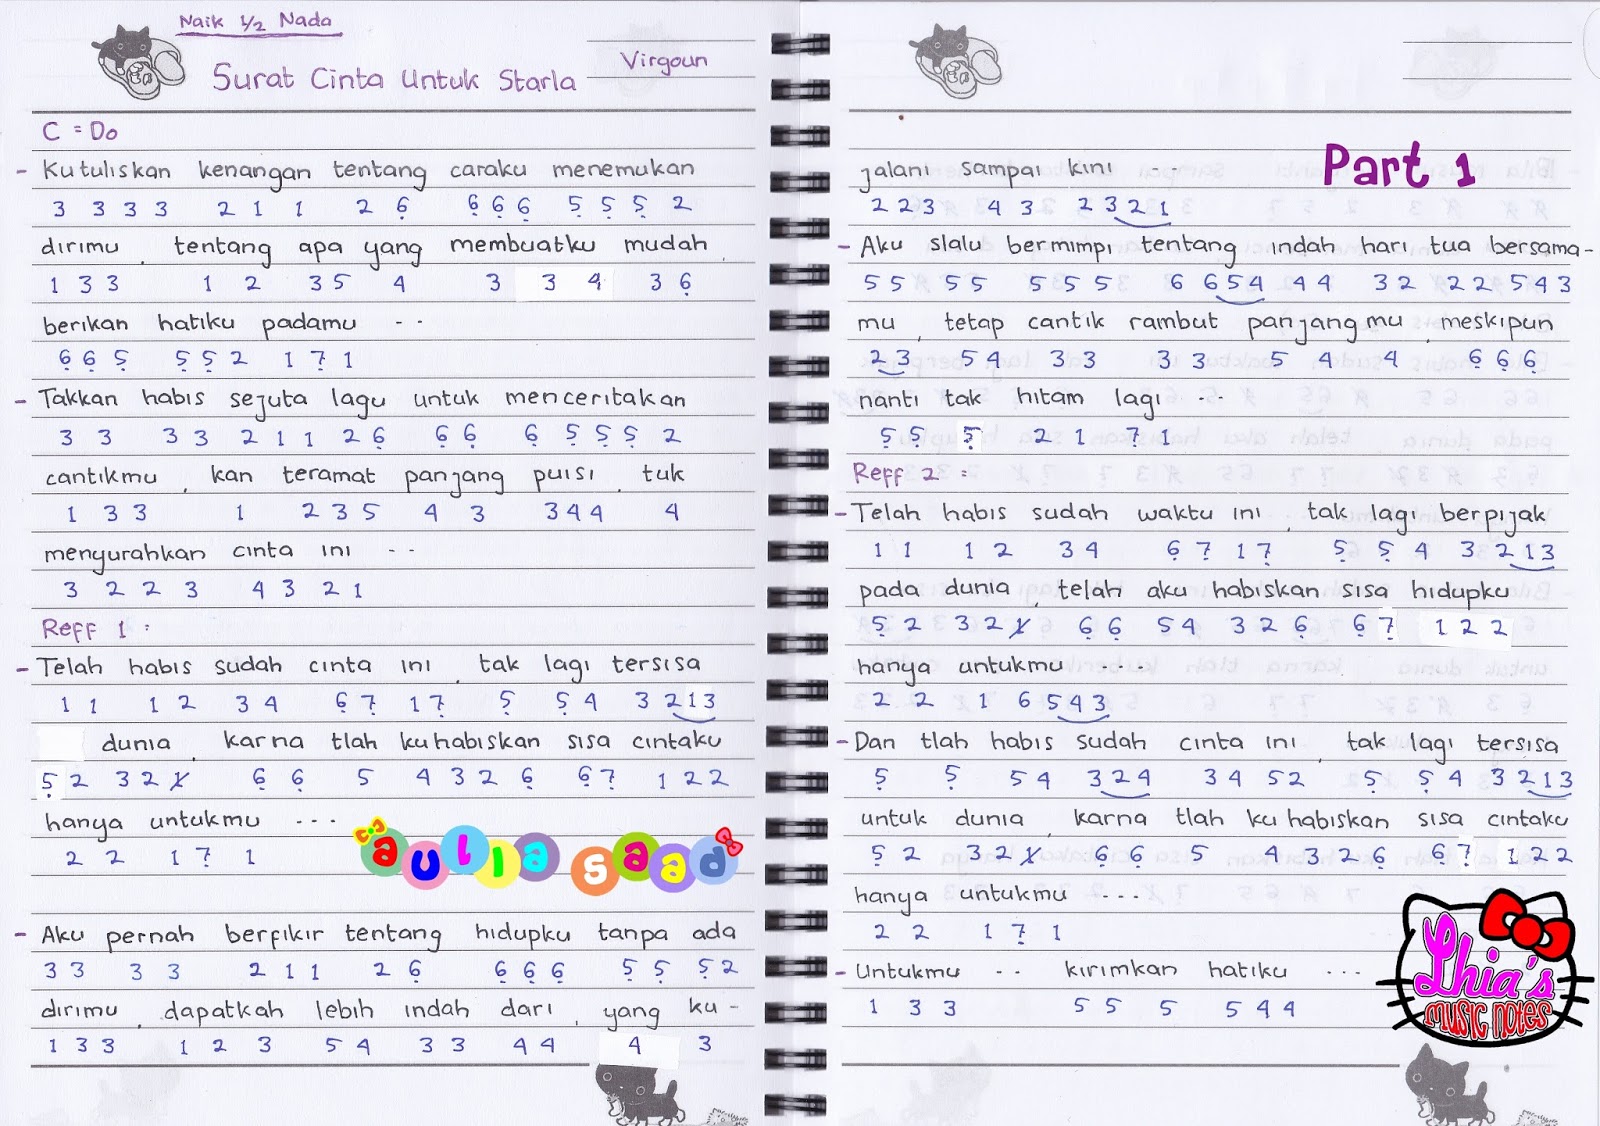 Naik 1/2 Nada
Surat Cinta Untuk Starla
Virgoun
C = Do
- Kutuliskan kenangan tentang caraku menemukan
3 3 3 3 2 1 1 2 6̣ 6̣ 6̣ 6̣ 5̣ 5̣ 5̣ 2
dirimu, tentang apa yang membuatku mudah,
1 3 3 1 2 3 5 4 3 3 4 3 6̣
berikan hatiku padamu - -
6̣ 6̣ 5̣ 5̣ 5̣ 2 1 7̣ 1
- Takkan habis sejuta lagu untuk menceritakan
3 3 3 3 2 1 1 2 6̣ 6̣ 6̣ 6̣ 5̣ 5̣ 5̣ 2
cantikmu, kan teramat panjang puisi, tuk
1 3 3 1 2 3 5 4 3 3 4 4 4
menyurahkan cinta ini - -
3 2 2 3 4 3 2 1
Reff 1 :
- Telah habis sudah cinta ini, tak lagi tersisa
1 1 1 2 3 4 6̣ 7̣ 1 7̣ 5̣ 5̣ 4 3 2 1 3
dunia, karna tlah kuhabiskan sisa cintaku
5̣ 2 3 2 1 6̣ 6̣ 5 4 3 2 6̣ 6̣ 7̣ 1 2 2
hanya untukmu - - -
2 2 1 7̣ 1
aulia saad
- Aku pernah berfikir tentang hidupku tanpa ada
3 3 3 3 2 1 1 2 6̣ 6̣ 6̣ 6̣ 5̣ 5̣ 5̣ 2
dirimu, dapatkah lebih indah dari, yang ku-
1 3 3 1 2 3 5 4 3 3 4 4 4 3
Part 1
jalani sampai kini - - -
2 2 3 4 3 2 3 2 1
- Aku slalu bermimpi tentang indah hari tua bersama-
5 5 5 5 5 5 5 6 6 5 4 4 4 3 2 2 2 5 4 3
mu, tetap cantik rambut panjangmu, meskipun
2 3 5 4 3 3 3 3 5 4 4 6̣ 6̣ 6̣
nanti tak hitam lagi - -
5̣ 5̣ 5̣ 2 1 7̣ 1
Reff 2 :
- Telah habis sudah waktu ini, tak lagi berpijak
1 1 1 2 3 4 6̣ 7̣ 1 7̣ 5̣ 5̣ 4 3 2 1 3
pada dunia, telah aku habiskan sisa hidupku
5̣ 2 3 2 1 6̣ 6̣ 5 4 3 2 6̣ 6̣ 7̣ 1 2 2
hanya untukmu - - - -
2 2 1 6 5 4 3
- Dan tlah habis sudah cinta ini, tak lagi tersisa
5̣ 5̣ 5 4 3 2 4 3 4 5 2 5̣ 5̣ 4 3 2 1 3
untuk dunia, karna tlah kuhabiskan sisa cintaku
5̣ 2 3 2 1 6̣ 6̣ 5 4 3 2 6̣ 6̣ 7̣ 1 2 2
hanya untukmu - - -
2 2 1 7̣ 1
- Untukmu - - kirimkan hatiku - - -
1 3 3 5 5 5 5 4 4
Lhia's
music notes